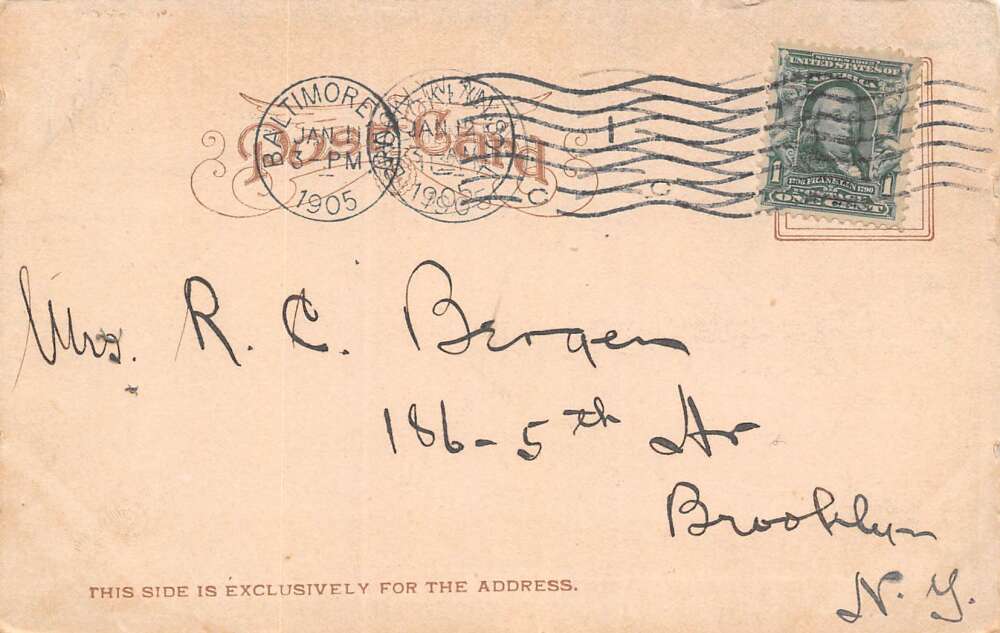 BALTIMORE
JAN 11
3 - PM
1905
BROOKLYN
JAN 12
1905
Post Card
SERIES 1902
UNITED STATES OF
AMERICA
1
1706 FRANKLIN 1790
1
POSTAGE
ONE CENT
Mrs. R. C. Bergen
186 - 5th Av
Brooklyn
N. Y.
THIS SIDE IS EXCLUSIVELY FOR THE ADDRESS.